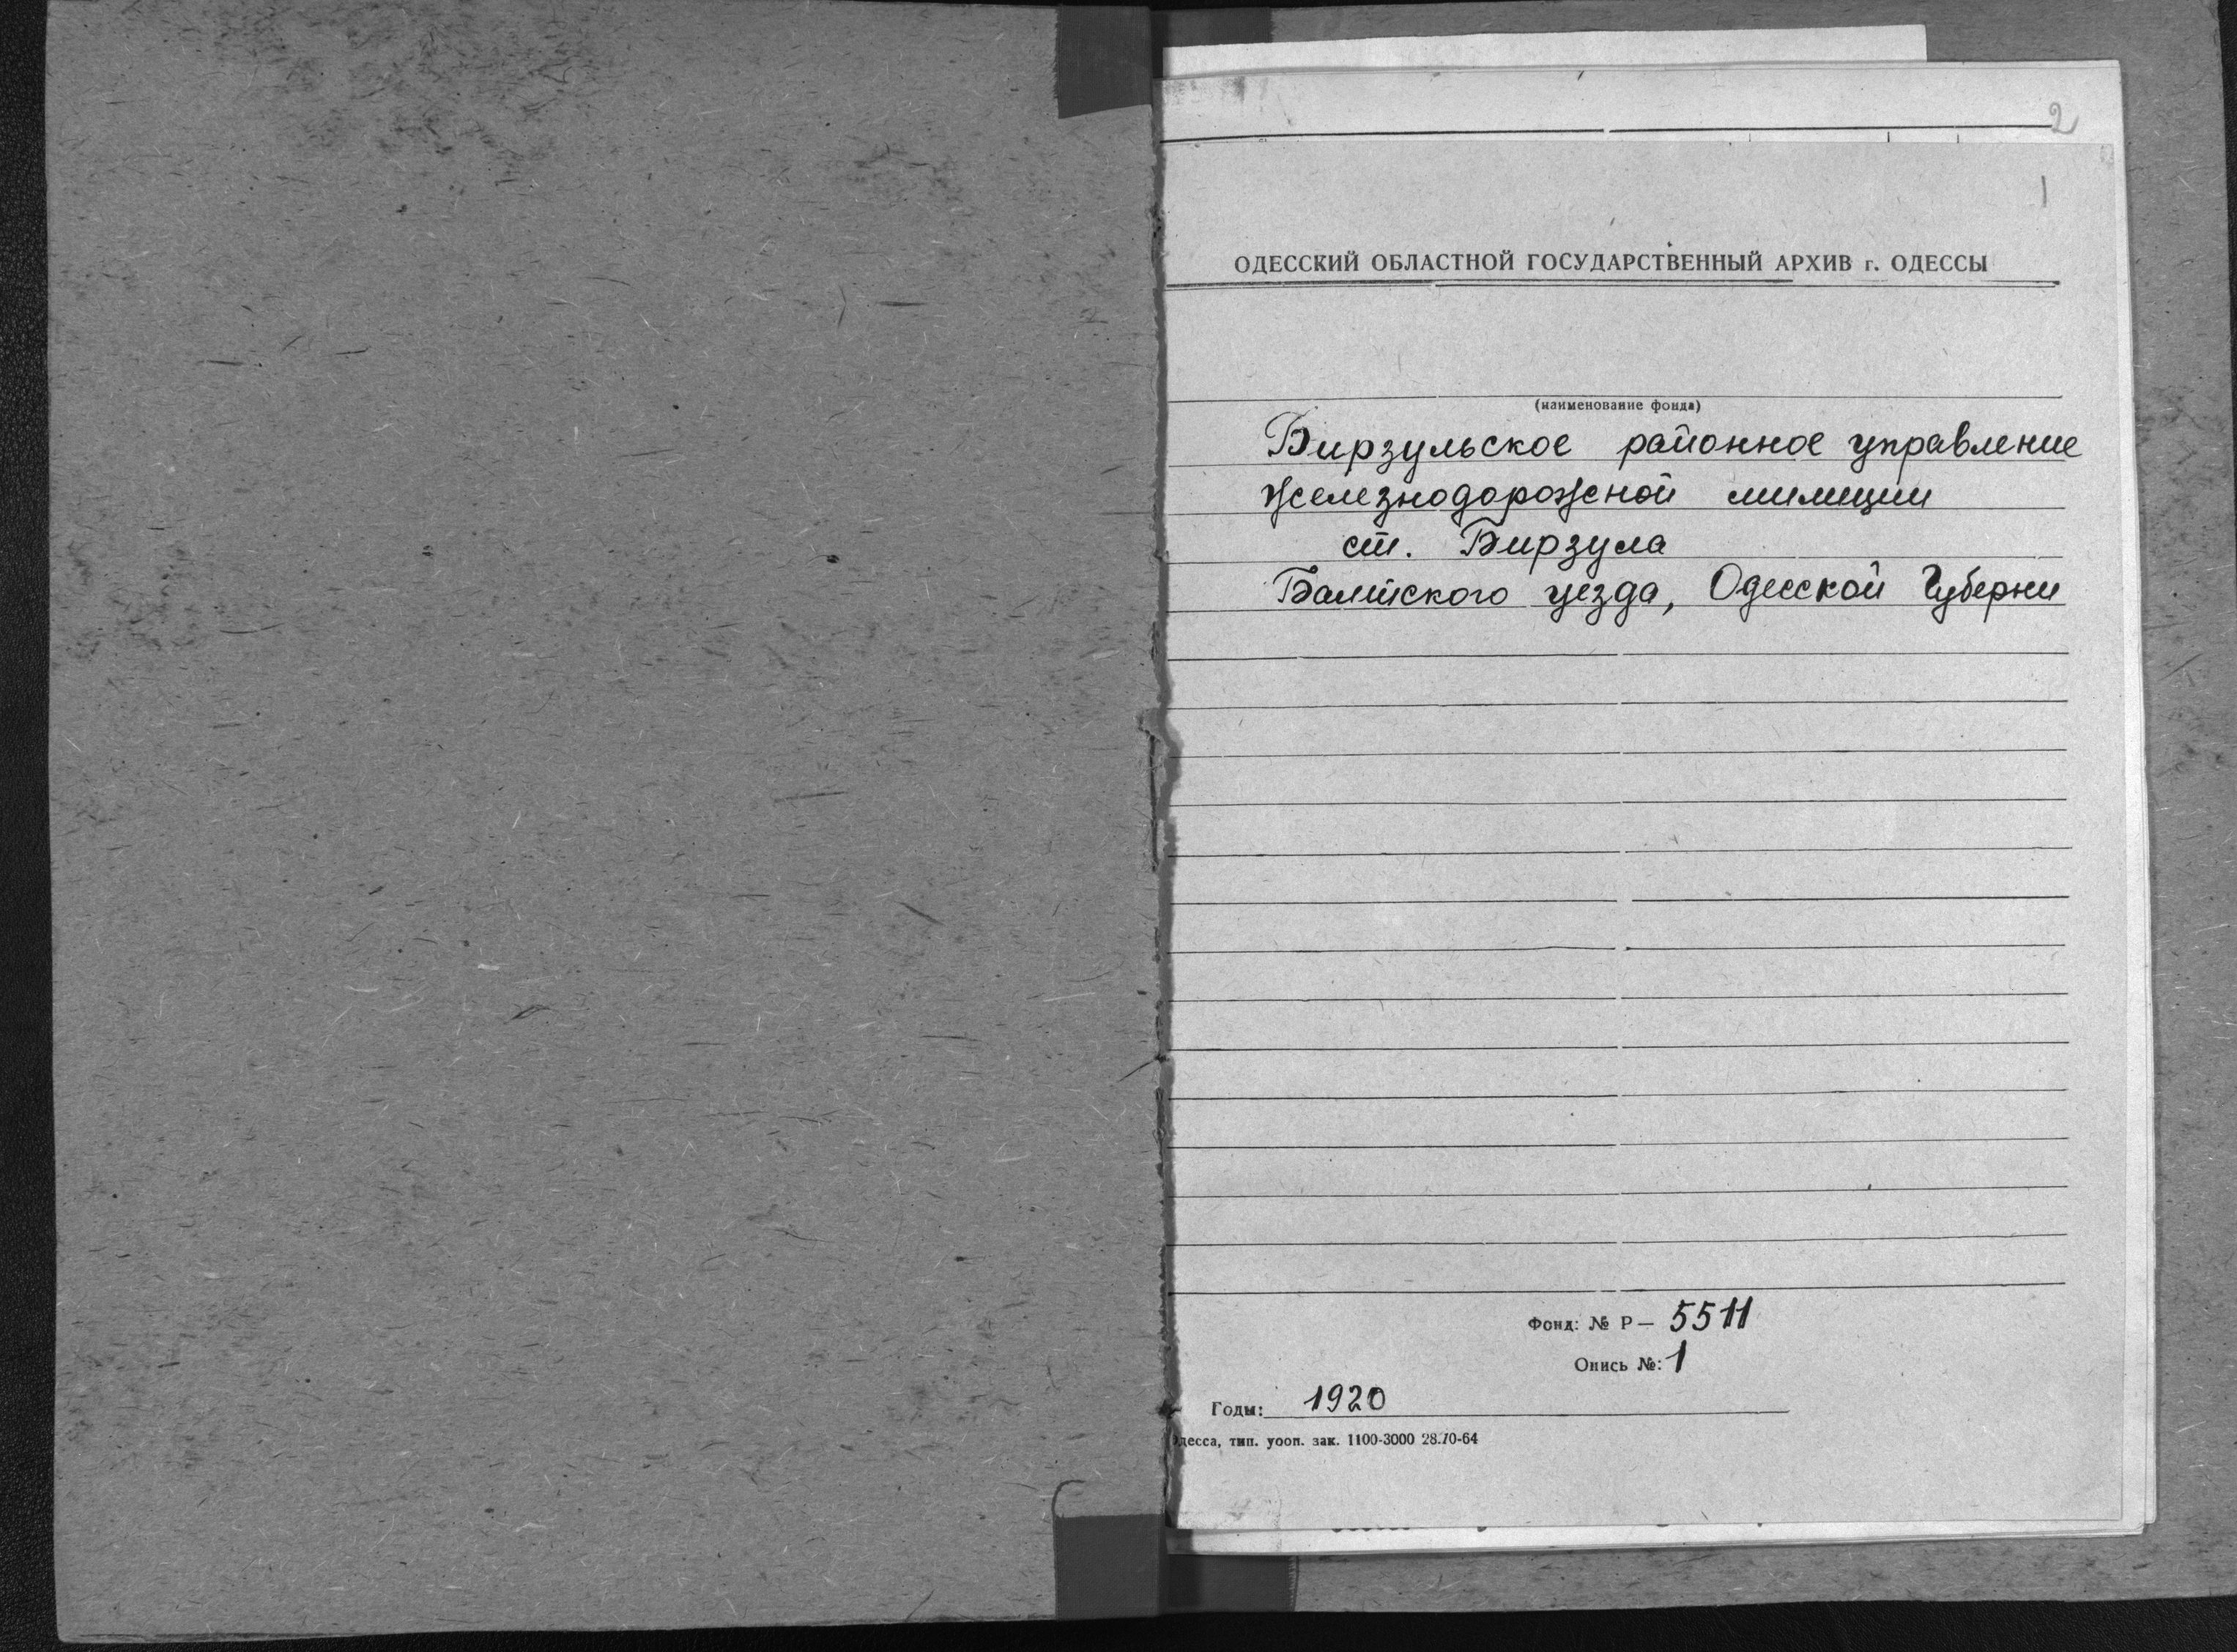 2
1
ОДЕССКИЙ ОБЛАСТНОЙ ГОСУДАРСТВЕННЫЙ АРХИВ г. ОДЕССЫ
(наименование фонда)
Бирзульское районное управление
железнодорожной милиции
ст. Бирзула
Балтского уезда, Одесской Губернии
Фонд: № Р— 5511
Опись №: 1
Годы: 1920
десса, тип. уооп. зак. 1100-3000 28.10-64